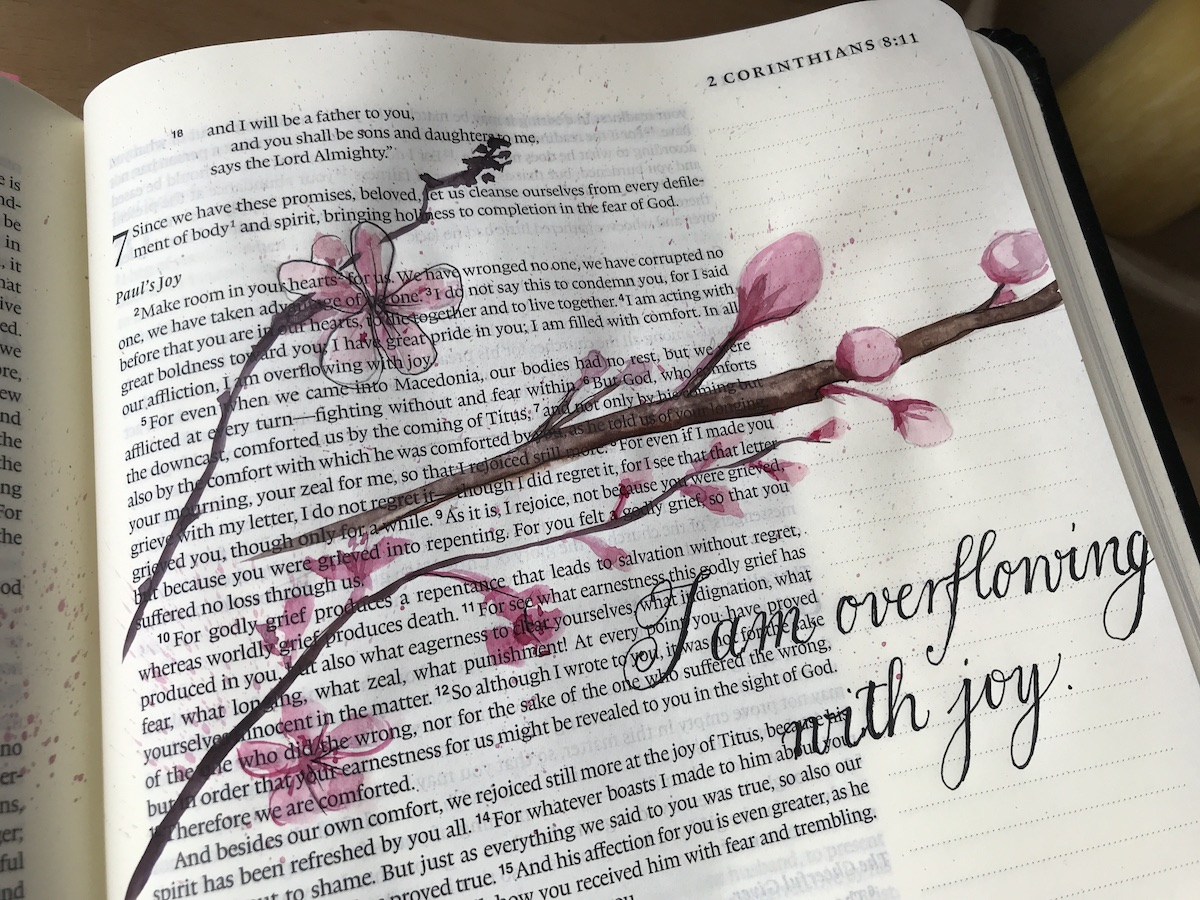 2 CORINTHIANS 8:11
18 and I will be a father to you,
and you shall be sons and daughters to me,
says the Lord Almighty.”
7 Since we have these promises, beloved, let us cleanse ourselves from every defile-
ment of body1 and spirit, bringing holiness to completion in the fear of God.
Paul's Joy
2 Make room in your hearts2 for us. We have wronged no one, we have corrupted no
one, we have taken advantage of no one. 3 I do not say this to condemn you, for I said
before that you are in our hearts, to die together and to live together. 4 I am acting with
great boldness toward you; I have great pride in you; I am filled with comfort. In all
our affliction, I am overflowing with joy.
5 For even when we came into Macedonia, our bodies had no rest, but we were
afflicted at every turn—fighting without and fear within. 6 But God, who comforts
the downcast, comforted us by the coming of Titus, 7 and not only by his coming but
also by the comfort with which he was comforted by you, as he told us of your longing,
your mourning, your zeal for me, so that I rejoiced still more. 8 For even if I made you
grieve with my letter, I do not regret it—though I did regret it, for I see that that letter
grieved you, though only for a while. 9 As it is, I rejoice, not because you were grieved,
but because you were grieved into repenting. For you felt a godly grief, so that you
suffered no loss through us.
10 For godly grief produces a repentance that leads to salvation without regret,
whereas worldly grief produces death. 11 For see what earnestness this godly grief has
produced in you, but also what eagerness to clear yourselves, what indignation, what
fear, what longing, what zeal, what punishment! At every point you have proved
yourselves innocent in the matter. 12 So although I wrote to you, it was not for the sake
of the one who did the wrong, nor for the sake of the one who suffered the wrong,
but in order that your earnestness for us might be revealed to you in the sight of God.
Therefore we are comforted.
And besides our own comfort, we rejoiced still more at the joy of Titus, because his
spirit has been refreshed by you all. 14 For whatever boasts I made to him about you,
to shame. But just as everything we said to you was true, so also our
proved true. 15 And his affection for you is even greater, as he
how you received him with fear and trembling.
I am overflowing
with joy.